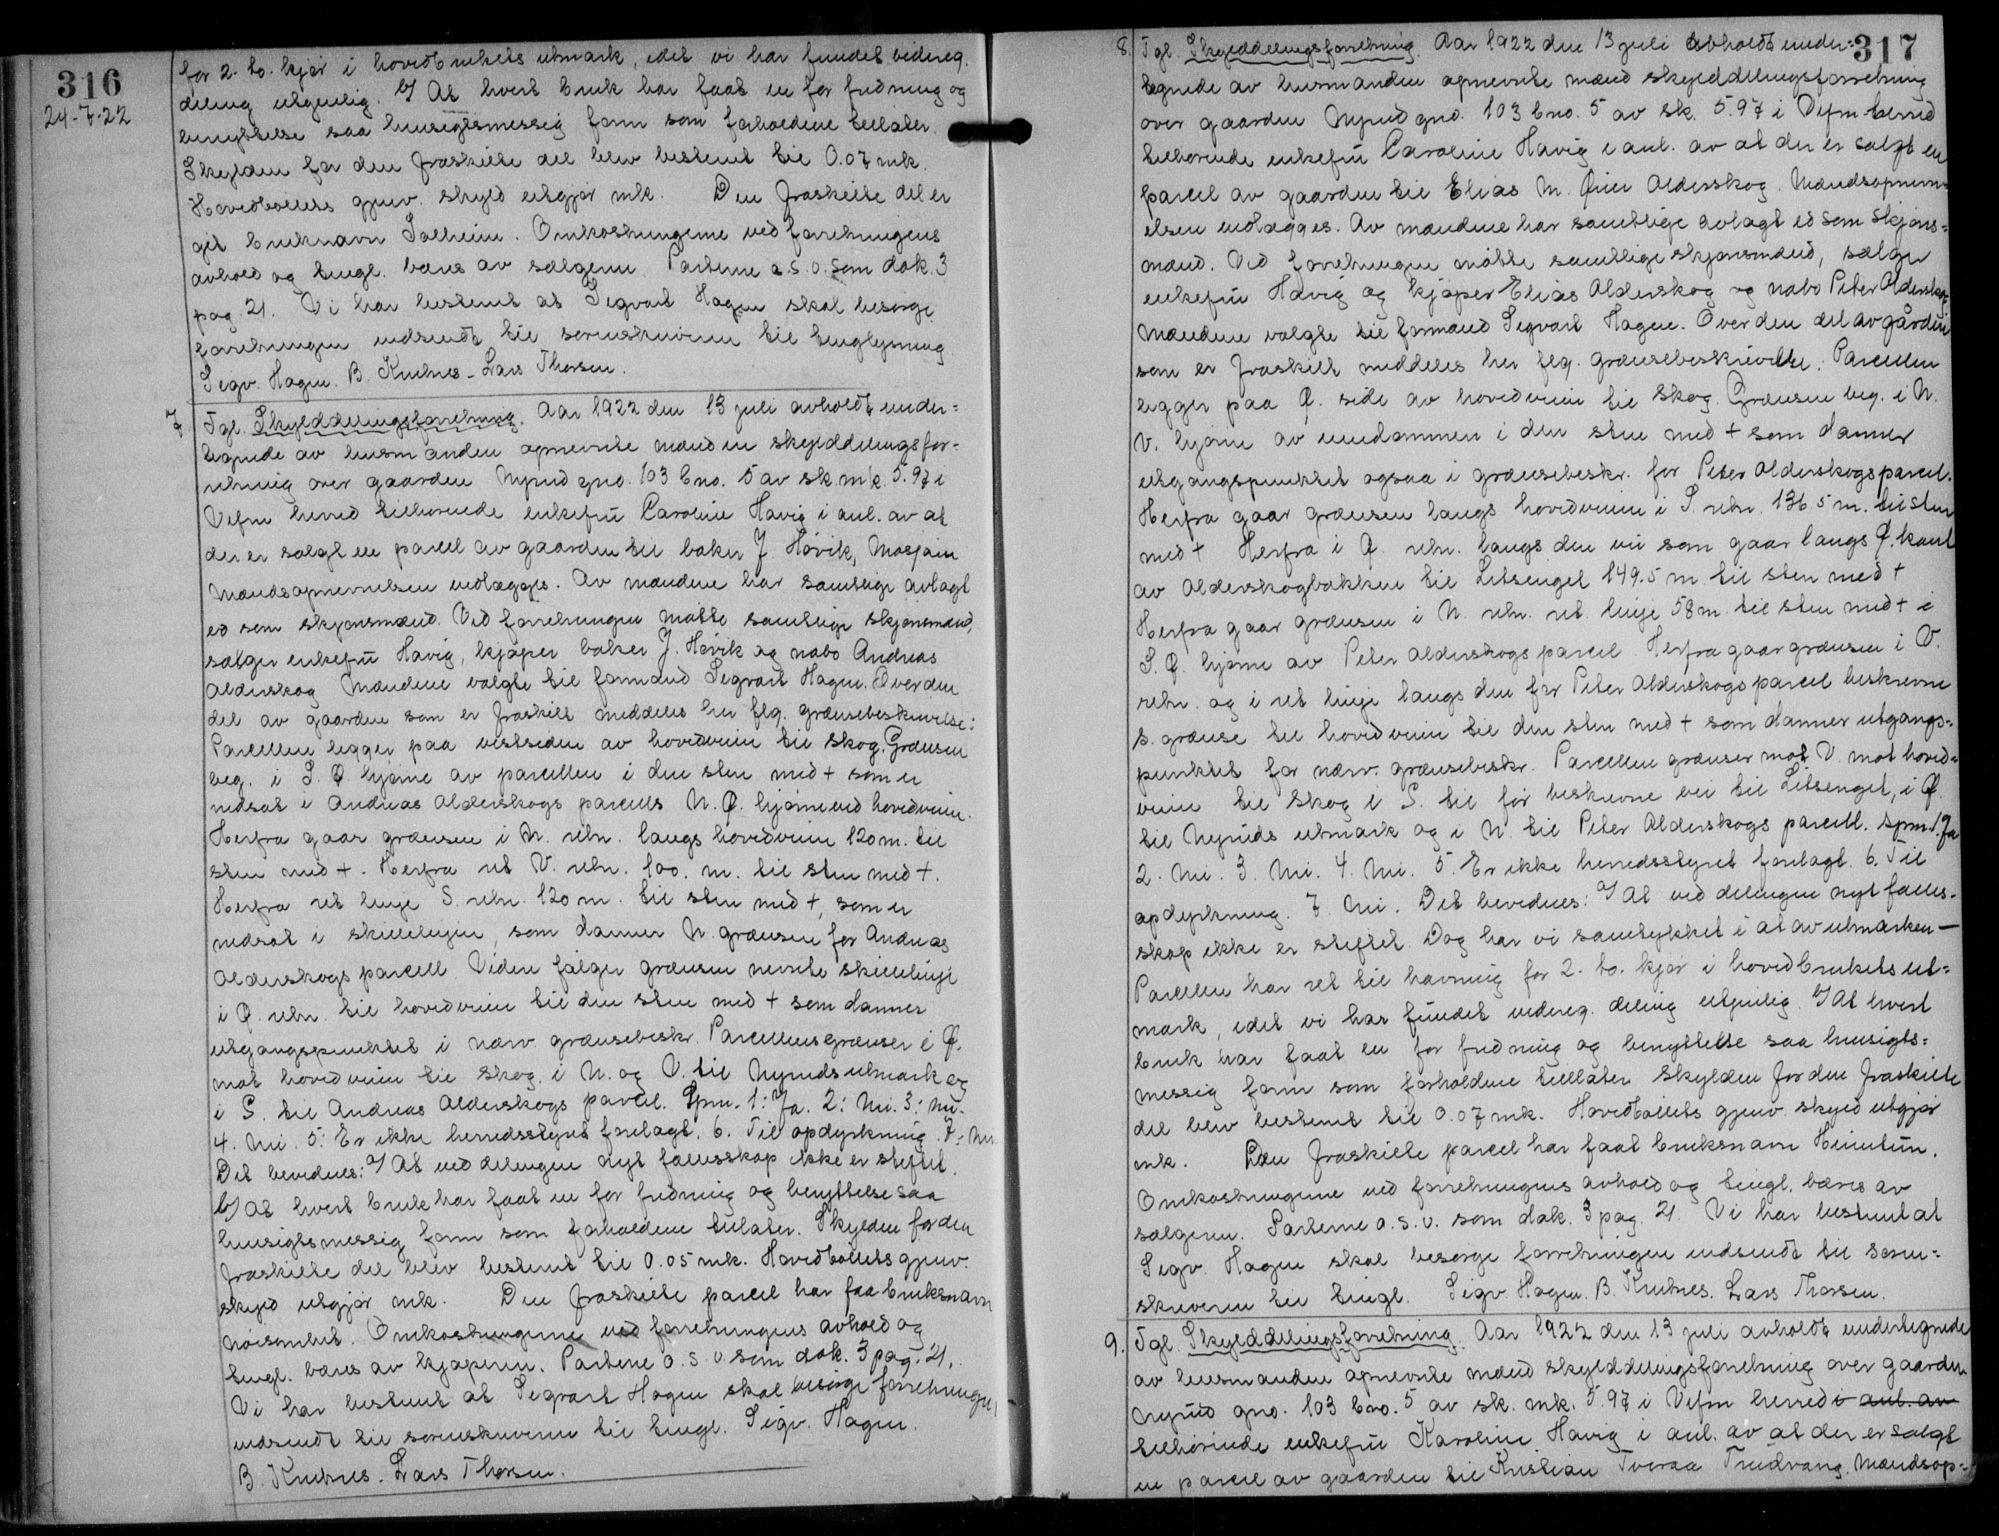 316
24-7-22
for 2. to. kjør i hovedbrukets utmark, idet vi har fundet videreg.
deling ugunstig. b/ At hvert bruk har faat en for fredning og
benyttelse saa hensigtsmessig form som forholdene tillater.
Skylden for den fraskilte del blev bestemt til 0.07 mk.
Hovedbøllets gjenv. skyld utgjør mk. Den fraskilte del er
git bruknavn Solheim. Omkostningerne ved forretningens
avhold og tingl. bæres av sælgeren. Parterne a.s.o. som dok. 3
pag. 21. Vi har bestemt at Segvart Hagen skal besørge
forretningen indsendt til sorenskriveren til tinglysning
Segv. Hagen. B. Knutnes - Lars Thorsen.
7 Tgl. Skylddelingsforretning. Aar 1922 den 13 juli avholdt under=
tegnede av lensmanden opnevnte mænd en skylddelingsfor-
retning over gaarden Nyrud gno. 103 bno. 5 av sk. mk. 5.97 i
Vefsn herred tilhørende enkefru Caroline Havig i anl. av at
der er solgt en parcel av gaarden til baker J. Høvik, Mosjøen
Mændsopnevnelsen vedlægges. Av mændene har samtlige avlagt
ed som skjønsmænd. Ved forretningen møtte samtlige skjønsmænd,
sælger enkefru Havig, kjøper baker J. Høvik og nabo Andreas
Alderskog Mændene valgte til formand Segvart Hagen. Over den
del av gaarden som er fraskilt meddeles her flg. grænsebeskrivelse:
Parcellen ligger paa vestsiden av hovedveien til Skog. Grænsen
beg. i S. Ø hjørne av parcellen i den sten med + som er
nedsat i Andreas Alderskogs parcels N. Ø. hjørne ved hovedveien.
Herfra gaar grænsen i N. retn. langs hovedveien 120 m. til
sten med +. Herfra ret V. retn. 100. m. til sten med +.
Herfra ret linje S. retn. 120 m. til sten med +, som er
nedsat i skillelinjen, som danner N. grænsen for Andreas
Alderskogs parcell. Videre følger grænsen nevnte skillelinje
i Ø. retn. til hovedveien til den sten med + som danner
utgangspunktet i nærv. grænsebeskr. Parcellens grænser i Ø.
mot hovedveien til Skog. i N. og V. til Nyruds utmark og
i S. til Andreas Alderskogs parcel. Spm. 1: Ja. 2: Nei. 3: Nei.
4. Nei. 5: Er ikke herredsstyret forelagt. 6. Til opdyrkning. 7: Nei
Det bevidnes: a/ At ved delingen nyt fællesskap ikke er stiftet.
b/ At hvert bruk har faat en for fredning og benyttelse saa
hensigtsmessig form som forholdene tillater. Skylden for den
fraskilte del blev bestemt til 0.05 mk. Hovedbøllets gjenv.
skyld utgjør mk. Den fraskilte parcel har faa bruksnavn
Nøisomhet. Omkostningerne ved forretningens avhold og
tingl. bæres av kjøperen. Parterne a.s.o. som dok. 3 pag. 21.
Vi har bestemt at Segvart Hagen skal besørge forretningen
indsendt til sorenskriveren til tingl. Sigv. Hagen.
B. Knutnes. Lars Thorsen.
317
8. Tgl. Skylddelingsforretning. Aar 1922 den 13 juli avholdt under=
tegnede av lensmanden opnevnte mænd skylddelingsforretning
over gaarden Nyrud gno. 103 bno. 5 av sk. 5.97 i Vefsn herred
tilhørende enkefru Caroline Havig i anl. av at der er solgt en
parcel av gaarden til Elias M. Øien Alderskog. Mændsopnevn=
elsen vedlægges. Av mændene har samtlige avlagt ed som skjøns=
mænd. Ved forretningen møtte samtlige skjønsmænd, sælger
enkefru Havig og kjøper Elias Alderskog og nabo Peter Alderskog.
Mændene valgte til formand Segvart Hagen. Over den del av gården
som er fraskilt meddeles her flg. grænsebeskrivelse: Parcellen
ligger paa Ø. side av hovedveien til Skog. Grænsen beg. i N.
V. hjørne av eiendommen i den sten med + som danner
utgangspunktet ogsaa i grænsebeskr. for Peter Alderskogs parcel.
Herfra gaar grænsen langs hovedveien i S. retn. 136.5 m. til sten
med + Herfra i Ø. retn. langs den vei som gaar langs Ø. kant
av Alderskogbakken til Litsenget 149.5 m. til sten med +
Herfra gaar grænsen i N. retn. ret linje 58 m. til sten med + i
S. Ø. hjørne av Peter Alderskogs parcel. Herfra gaar grænsen i V.
retn. og i ret linje langs den for Peter Alderskogs parcel beskrevne
s. grænse til hovedveien til den sten med + som danner utgangs=
punktet for nærv. grænsebeskr. Parcellen grænser mot V. mot hoved=
veien til Skog i S. til før beskrevne vei til Litsenget, i Ø.
til Nyruds utmark og i N. til Peter Alderskogs parcell. Spm. 1. Ja
2. Nei. 3. Nei. 4. Nei. 5. Er ikke herredsstyret forelagt. 6. Til
opdyrkning. 7. Nei. Det bevidnes: a/ At ved delingen nyt fælles-
skap ikke er stiftet. Dog har vi samtykket i at av utmarken —
Parcellen har ret til havning for 2. to. kjør i hovedbrukets ut=
mark, idet vi har fundet videreg. deling ugunstig. b/ At hvert
bruk har faat en for fredning og benyttelse saa hensigts=
messig form som forholdene tillater. Skylden for den fraskilte
del blev bestemt til 0.07 mk. Hovedbøllets gjenv. skyld utgjør
mk. Den fraskilte parcel har faat bruksnavn Heimtun.
Omkostningerne ved forretningens avhold og tingl. bæres av
sælgeren. Parterne a.s.o. som dok. 3 pag. 21. Vi har bestemt at
Segv. Hagen skal besørge forretningen indsendt til soren=
skriveren til tingl. Segv. Hagen. B. Knutnes. Lars Thorsen.
9. Tgl. Skylddelingsforretning. Aar 1922 den 13 juli avholdt undertegnede
av lensmanden opnevnte mænd skylddelingsforretning over gaarden
Nyrud gno. 103 bno. 5 av sk. mk. 5.97 i Vefsn herred i anl. av
tilhørende enkefru Karoline Havig i anl. av at der er solgt
en parcel av gaarden til Kristian Tveraa Trudvang. Mændsop=